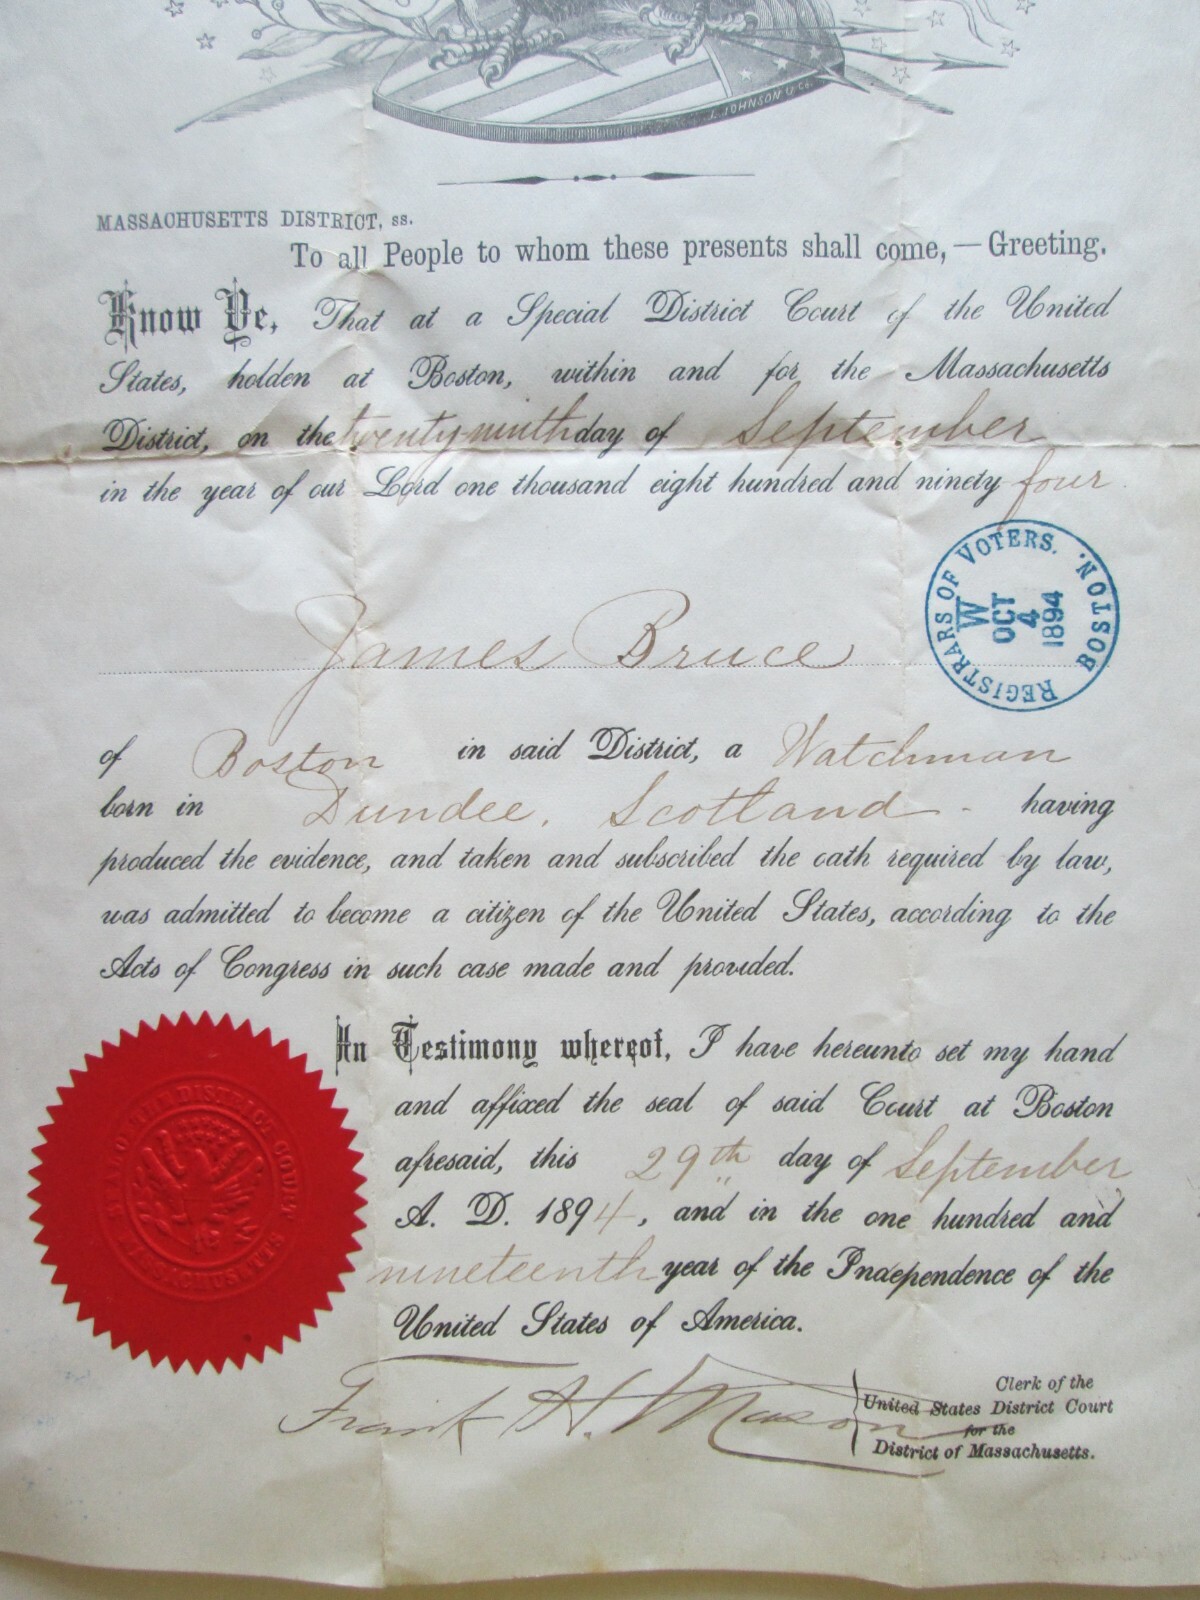 L. JOHNSON & Co.
MASSACHUSETTS DISTRICT, ss.
To all People to whom these presents shall come, — Greeting.
Know Ye, That at a Special District Court of the United
States, holden at Boston, within and for the Massachusetts
District, on the twenty-ninth day of September
in the year of our Lord one thousand eight hundred and ninety four
REGISTRARS OF VOTERS. BOSTON.
W
OCT
4
1894
James Bruce
of Boston in said District, a Watchman
born in Dundee, Scotland - having
produced the evidence, and taken and subscribed the oath required by law,
was admitted to become a citizen of the United States, according to the
Acts of Congress in such case made and provided.
In Testimony whereof, I have hereunto set my hand
and affixed the seal of said Court at Boston
aforesaid, this 29th day of September
A. D. 1894, and in the one hundred and
nineteenth year of the Independence of the
United States of America.
Frank H. Mason
Clerk of the
United States District Court
for the
District of Massachusetts.
DISTRICT COURT
MASSACHUSETTS